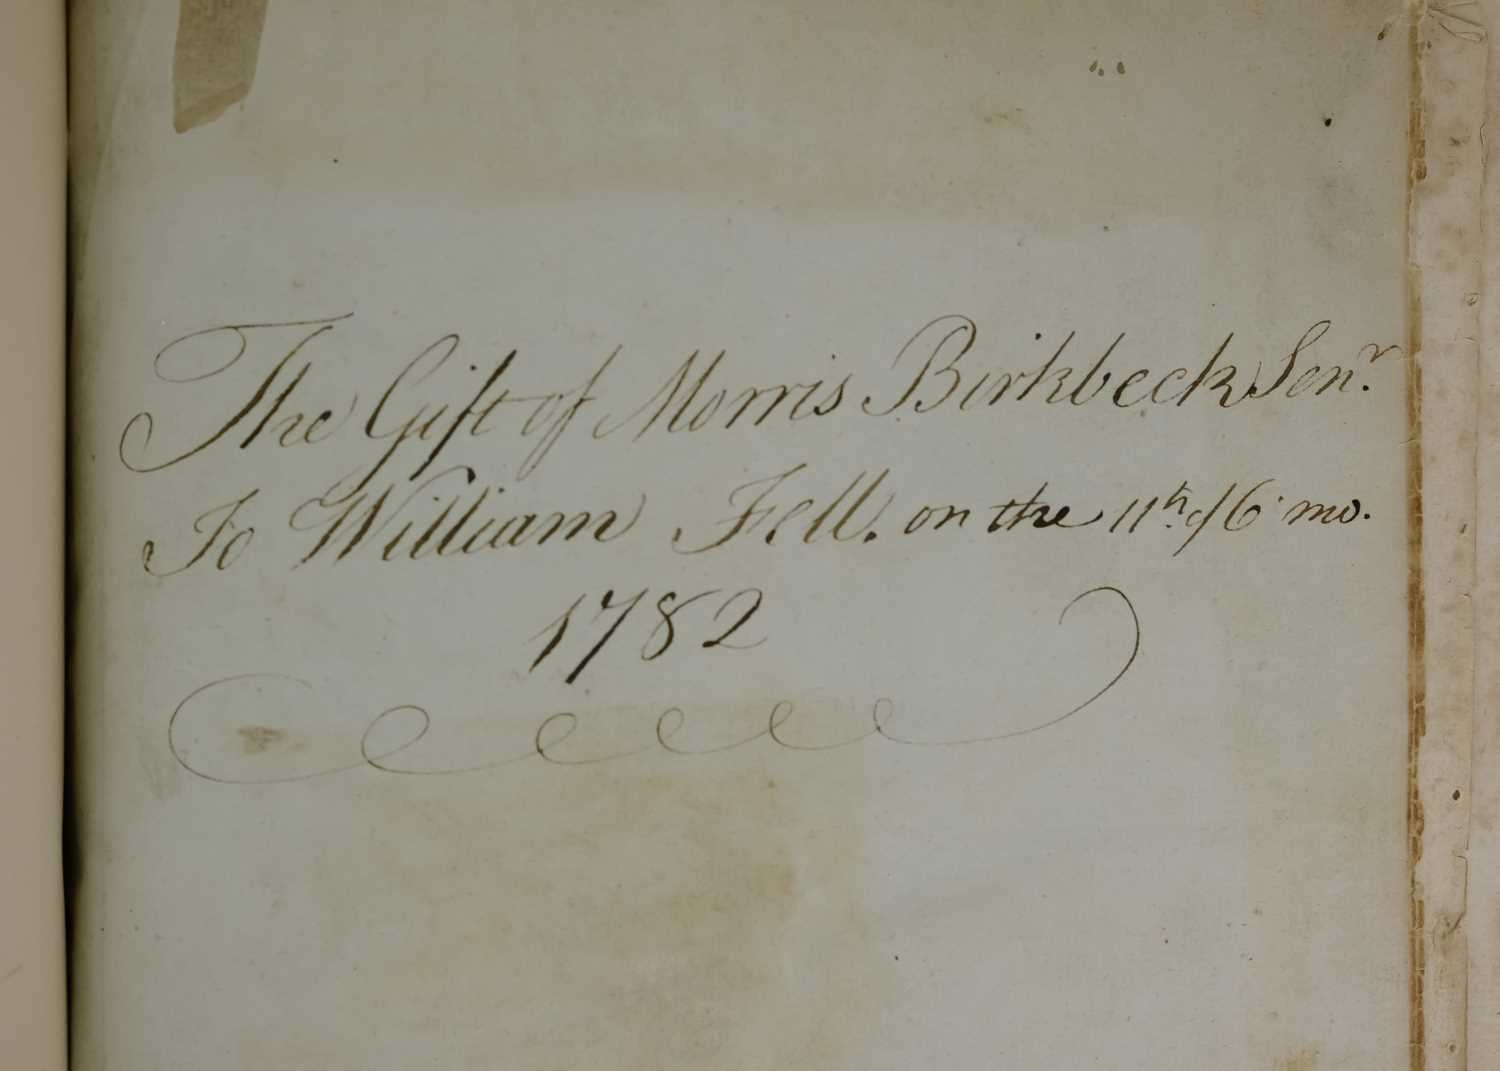 The Gift of Morris Birkbeck Senr.
To William Fell. on the 11th of 6 mo.
1782